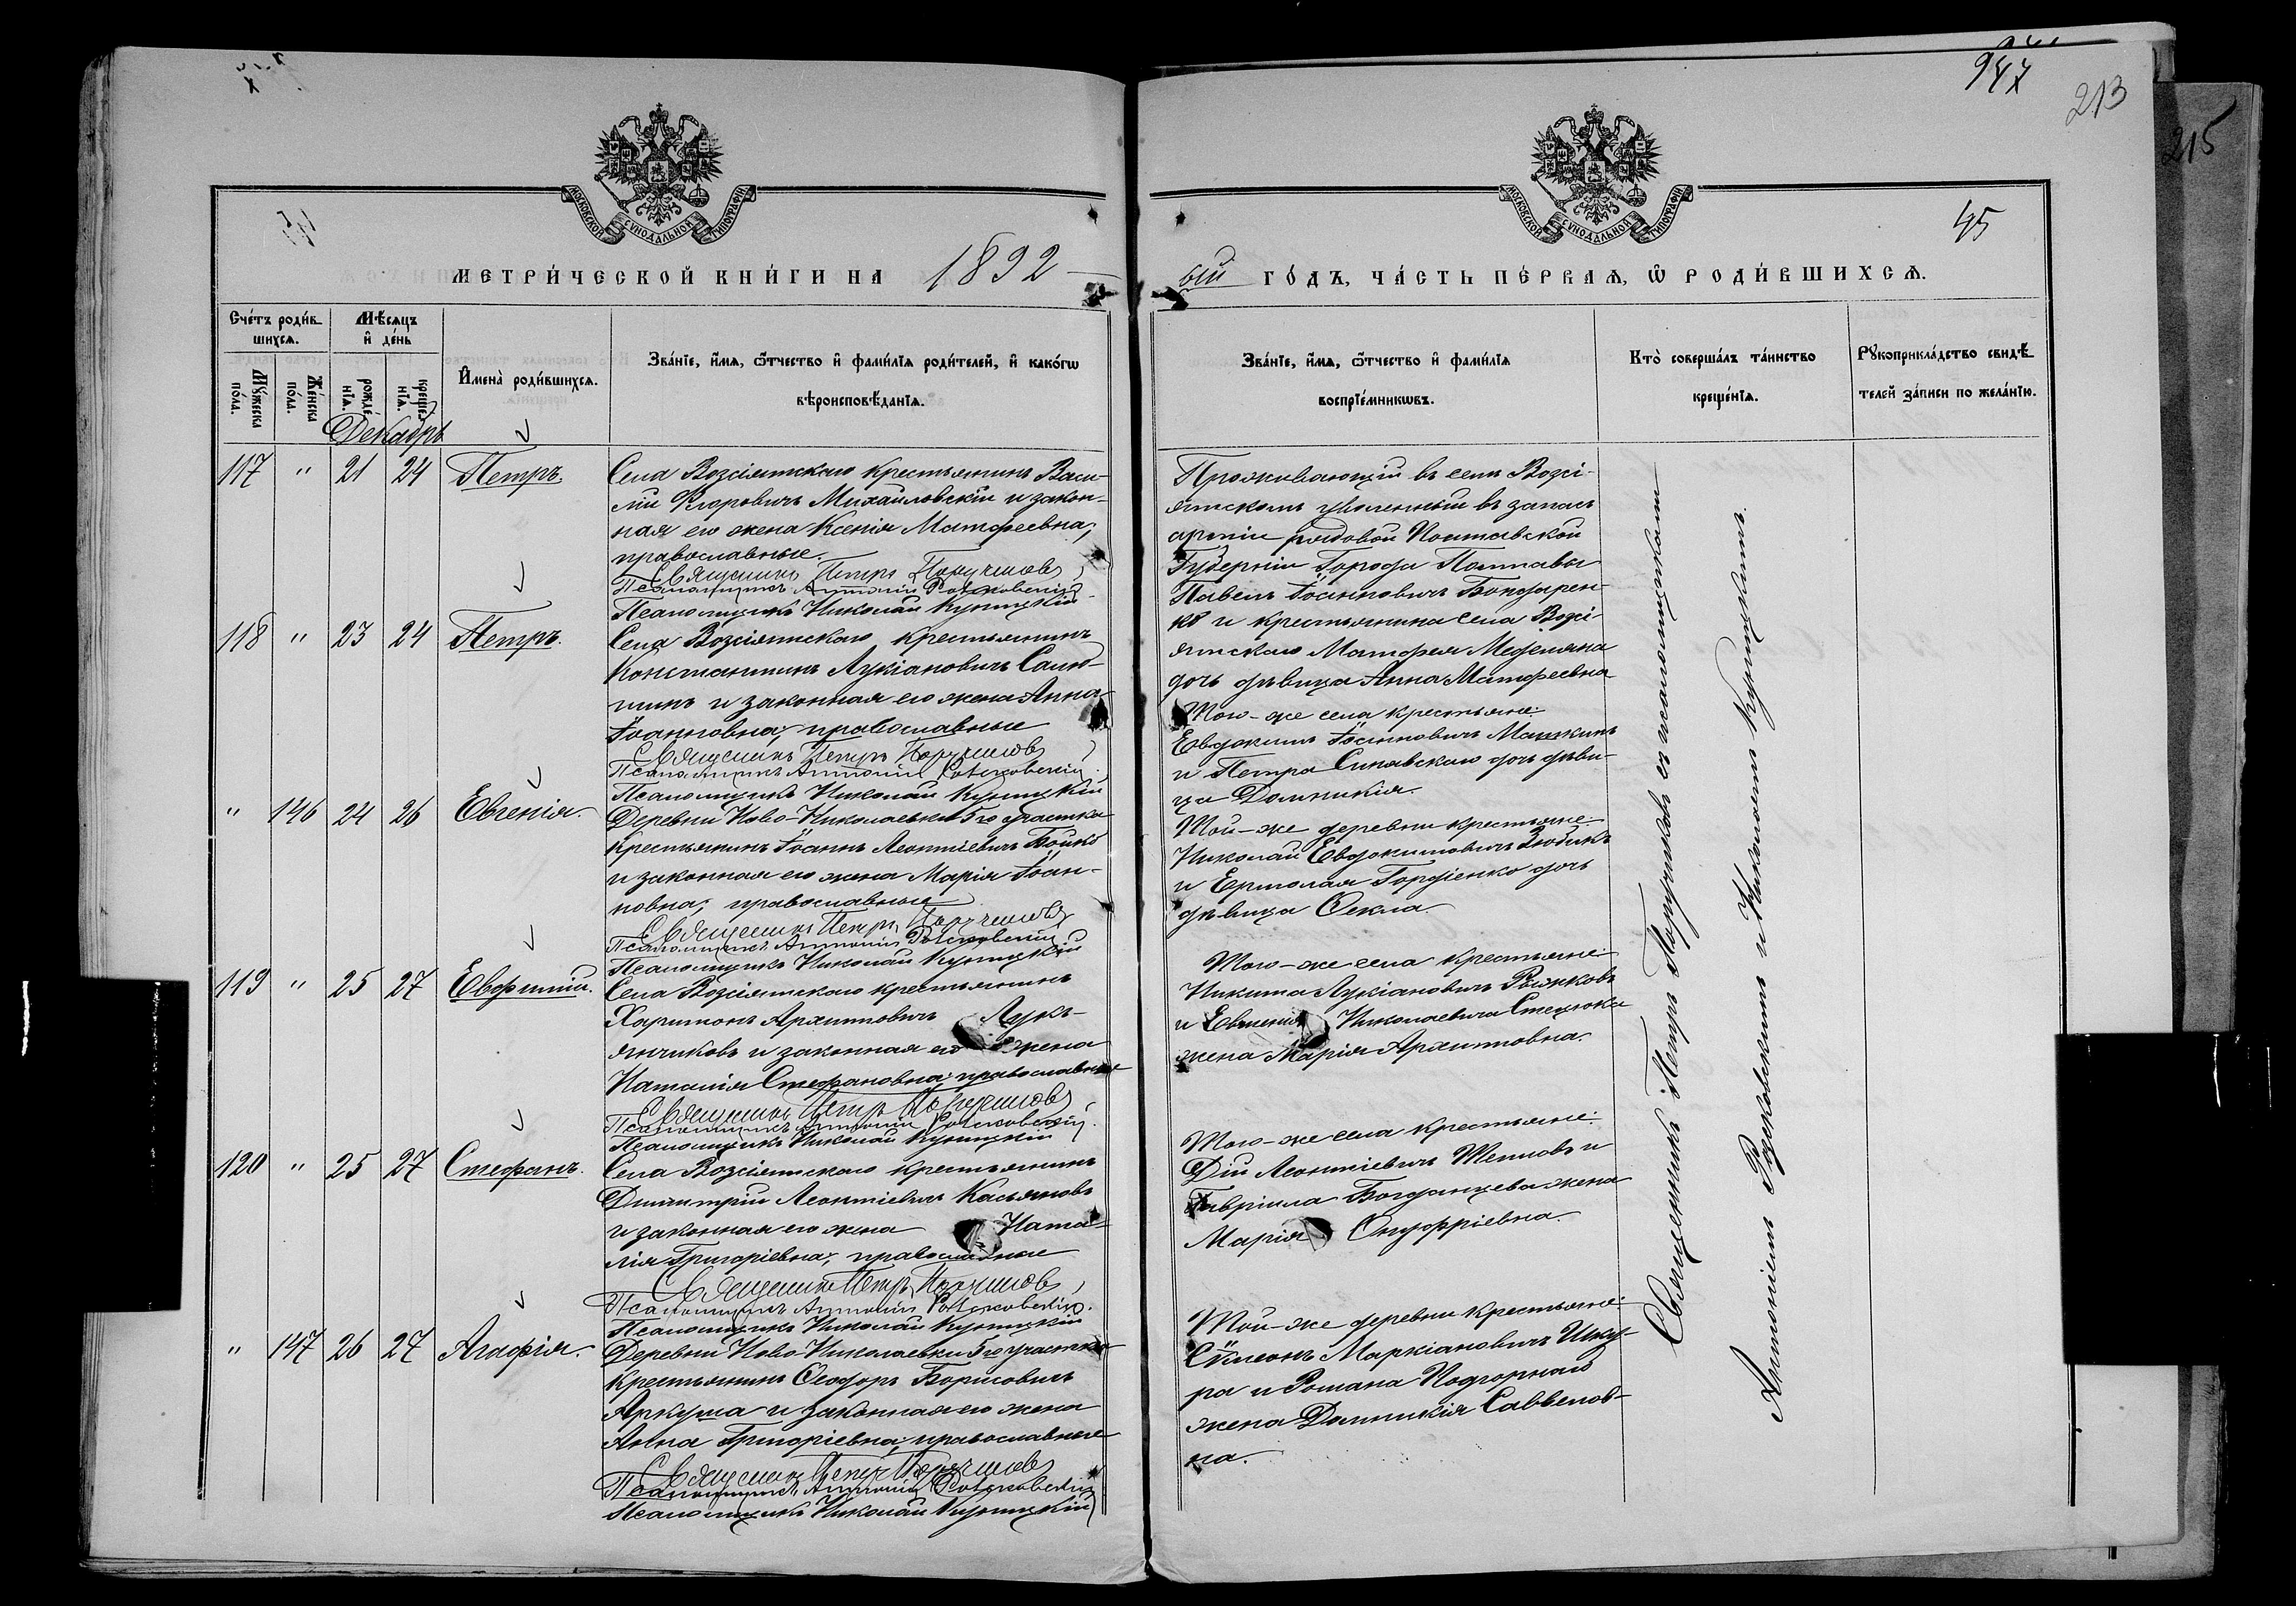 947
213
215
45
МОСКОВСКОЙ СѴНОДАЛЬНОЙ ТИПОГРАФІИ
МОСКОВСКОЙ СѴНОДАЛЬНОЙ ТИПОГРАФІИ
МЕТРИ́ЧЕСКОЙ КНИ́ГИ НА 1892
ый ГО́ДЪ, ЧА́СТЬ ПЕ́РВАЯ, Ѡ РОДИ́ВШИХСЯ.
Сче́тъ роди́в-
шихся.
Мѣсяцъ
и де́нь
Мꙋ́жеска по́ла.
Же́нска по́ла.
рожде́нїя.
креще́нїя.
Имена̀ роди́вшихся.
Зва́нїе, и́мя, ѻ́тчество и фами́лїя роди́телей, и како́гѡ
вѣроисповѣ́данїя.
Зва́нїе, и́мя, ѻ́тчество и фами́лїя
воспрїе́мникѡвъ.
Кто̀ соверша́лъ та́инство
креще́нїя.
Рꙋкоприкла́дство свидѣ́-
телей за́писи по жела́нїю.
Декабрь
117 " 21 24 Петръ.
Села Возсіятскаго крестьянинъ Васи-
лій Егоровичъ Михайловскій и закон-
ная его жена Ксенія Матѳеевна,
православные.
Священникъ Петръ Поручиковъ
Псаломщикъ Антоній Рудковскій
Псаломщикъ Николай Куницкій
Проживающій въ селѣ Возсі-
ятскомъ уволенный въ запасъ
арміи рядовой Полтавской
Губерніи Города Полтавы
Павелъ Іоанновичъ Бондарен-
ко и крестьянина села Возсі-
ятскаго Матѳея Меделяна
дочь дѣвица Анна Матѳеевна
118 " 23 24 Петръ.
Села Возсіятскаго крестьянинъ
Константинъ Лукіановичъ Салю-
тинъ и законная его жена Анна
Іоанновна, православные
Священникъ Петръ Поручиковъ
Псаломщикъ Антоній Рудковскій
Псаломщикъ Николай Куницкій
Того-же села крестьяне:
Евдокимъ Іоанновичъ Машкинъ
и Петра Синявскаго дочь дѣви-
ца Домникія.
" 146 24 26 Евгенія.
Деревни Ново-Николаевки 5го участка
крестьянинъ Іоаннъ Леонтіевичъ Бойко
и законная его жена Марія Іоан-
новна, православные
Священникъ Петръ Поручиковъ
Псаломщикъ Антоній Рудковскій
Псаломщикъ Николай Куницкій
Той-же деревни крестьяне:
Николай Евдокимовичъ Зюбикъ
и Ермолая Гордіенко дочь
дѣвица Ѳекла.
119 " 25 27 Евфимій.
Села Возсіятскаго крестьянинъ
Харитонъ Архиповичъ Лукь-
янчиковъ и законная его жена
Наталія Стефановна, православные
Священникъ Петръ Поручиковъ
Псаломщикъ Антоній Рудковскій
Псаломщикъ Николай Куницкій
Того-же села крестьяне:
Никита Лукіановичъ Рыжковъ
и Евгенія Николаевича Стецюка
жена Марія Архиповна.
120 " 25 27 Стефанъ.
Села Возсіятскаго крестьянинъ
Димитрій Леонтіевичъ Касьяновъ
и законная его жена Ната-
лія Григоріевна, православные
Священникъ Петръ Поручиковъ
Псаломщикъ Антоній Рудковскій
Псаломщикъ Николай Куницкій
Того-же села крестьяне:
Дій Леонтіевичъ Шеплов и
Гавріила Богданцева жена
Марія Онуфріевна.
" 147 26 27 Агафія.
Деревни Ново-Николаевки 5го участка
крестьянинъ Ѳеодоръ Борисовичъ
Аркуша и законная его жена
Анна Григоріевна, православные
Священникъ Петръ Поручиковъ
Псаломщикъ Антоній Рудковскій
Псаломщикъ Николай Куницкій
Той-же деревни крестьяне:
Сѵмеонъ Маркіановичъ Шку-
ра и Романа Подгорнаго
жена Домникія Саввелов-
на.
Священникъ Петръ Поручиковъ съ псаломщиками
Антоніемъ Рудковскимъ и Николаемъ Куницкимъ.